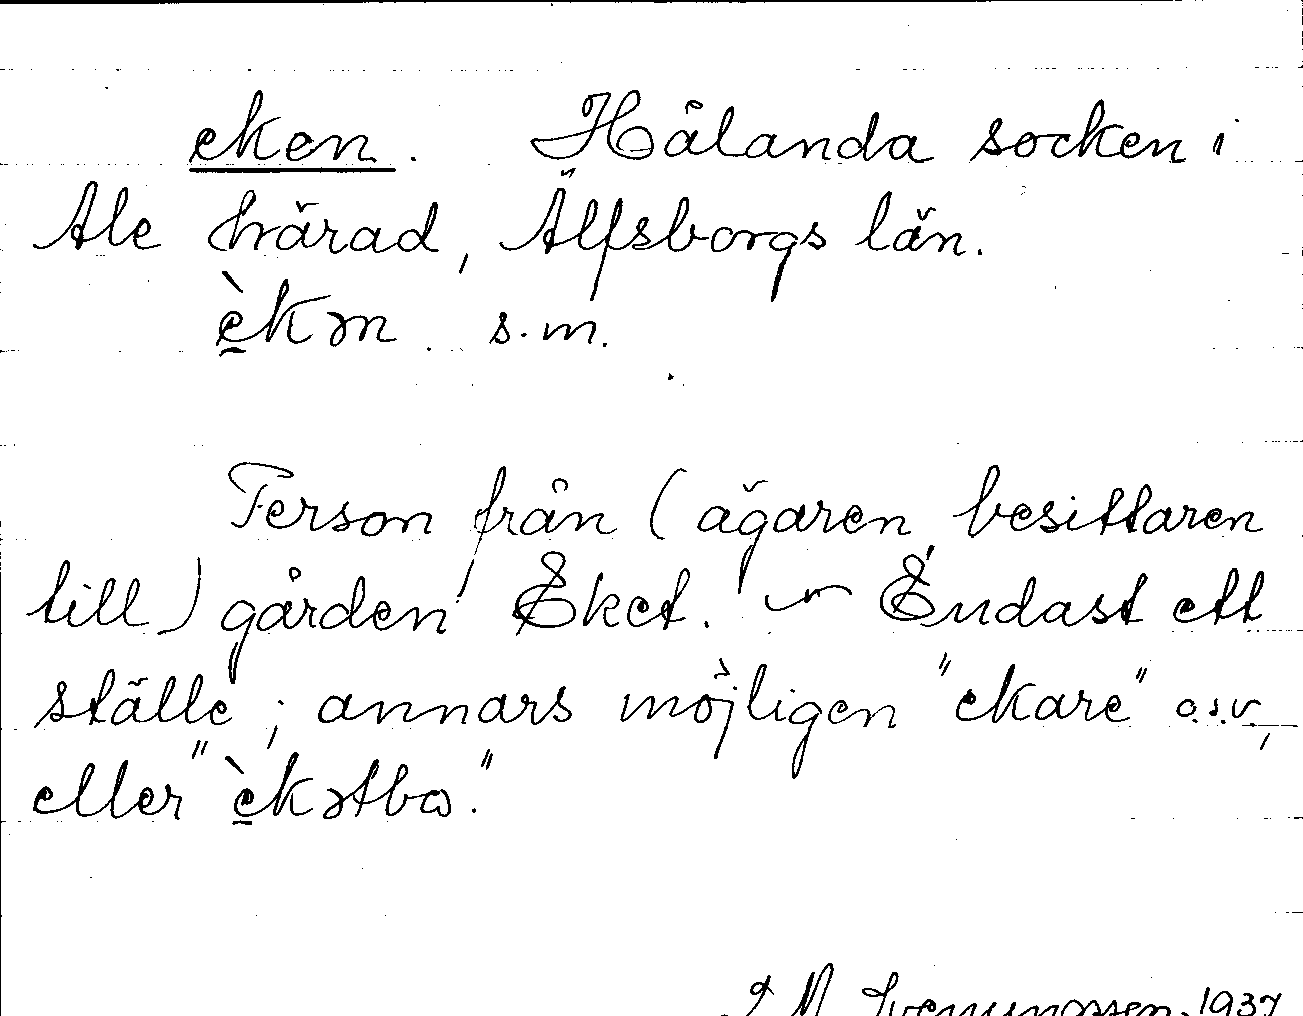 eken. Hålanda socken i
Ale härad, Älfsborgs län.
è̲kən s.m.
Person från (ägaren, besittaren
till) gården Eket. ~ Endast ett
ställe; annars möjligen "ekare" o.s.v,
eller "è̲kətbo."
1937